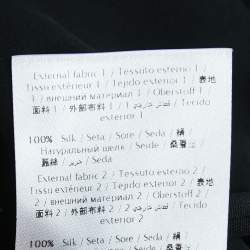 External fabric 1 / Tessuto esterno 1 /
Tissu extérieur 1 / Tejido externo 1 / 表地
1 / внешний материал 1 / Oberstoff 1 /
面料 1 / 外部布料 1 / 1 قماش خارجي / Tecido
exterior 1
100% Silk / Seta / Sore / Seda / 絹
/ Натуральный шелк / Seide / 桑蚕
蠶絲 / حرير / Seda
External fabric 2 / Tessuto esterno 2 /
Tissu extérieur 2 / Tejido externo 2 / 表地
2 / внешний материал 2 / Oberstoff 2 /
面料 2 / 外部布料 2 / 2 قماش خارجي / Tecido
exterior 2
100% Silk / Seta / Sore / Seda / 絹